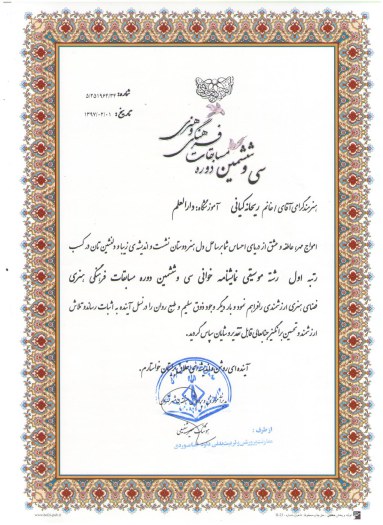 شماره: ۵/۲۵۱۹۶۴/۳۲
تاریخ: ۱۳۹۷/۰۶/۰۱
سی و ششمین دوره مسابقات فرهنگی هنری
هنرمند گرامی آقای / خانم ریحانه کیانی آموزشگاه: دارالعلم
امواج مهر، عاطفه و عشق از دریای احساس شما بر ساحل دل هنردوستان نشست و اندیشه‌ی زیبا و دلنشین تان در کسب
رتبه اول رشته موسیقی نمایشنامه خوانی سی و ششمین دوره مسابقات فرهنگی هنری
فضای هنری ارزشمندی را فراهم نمود و بار دیگر وجود ذوق سلیم و طبع روان را در نسل آینده به اثبات رساند و تلاش
ارزشمند و تحسین برانگیز جنابعالی قابل تقدیر و شایان سپاس گردید.
آینده ای روشن خواستارم.
از طرف: